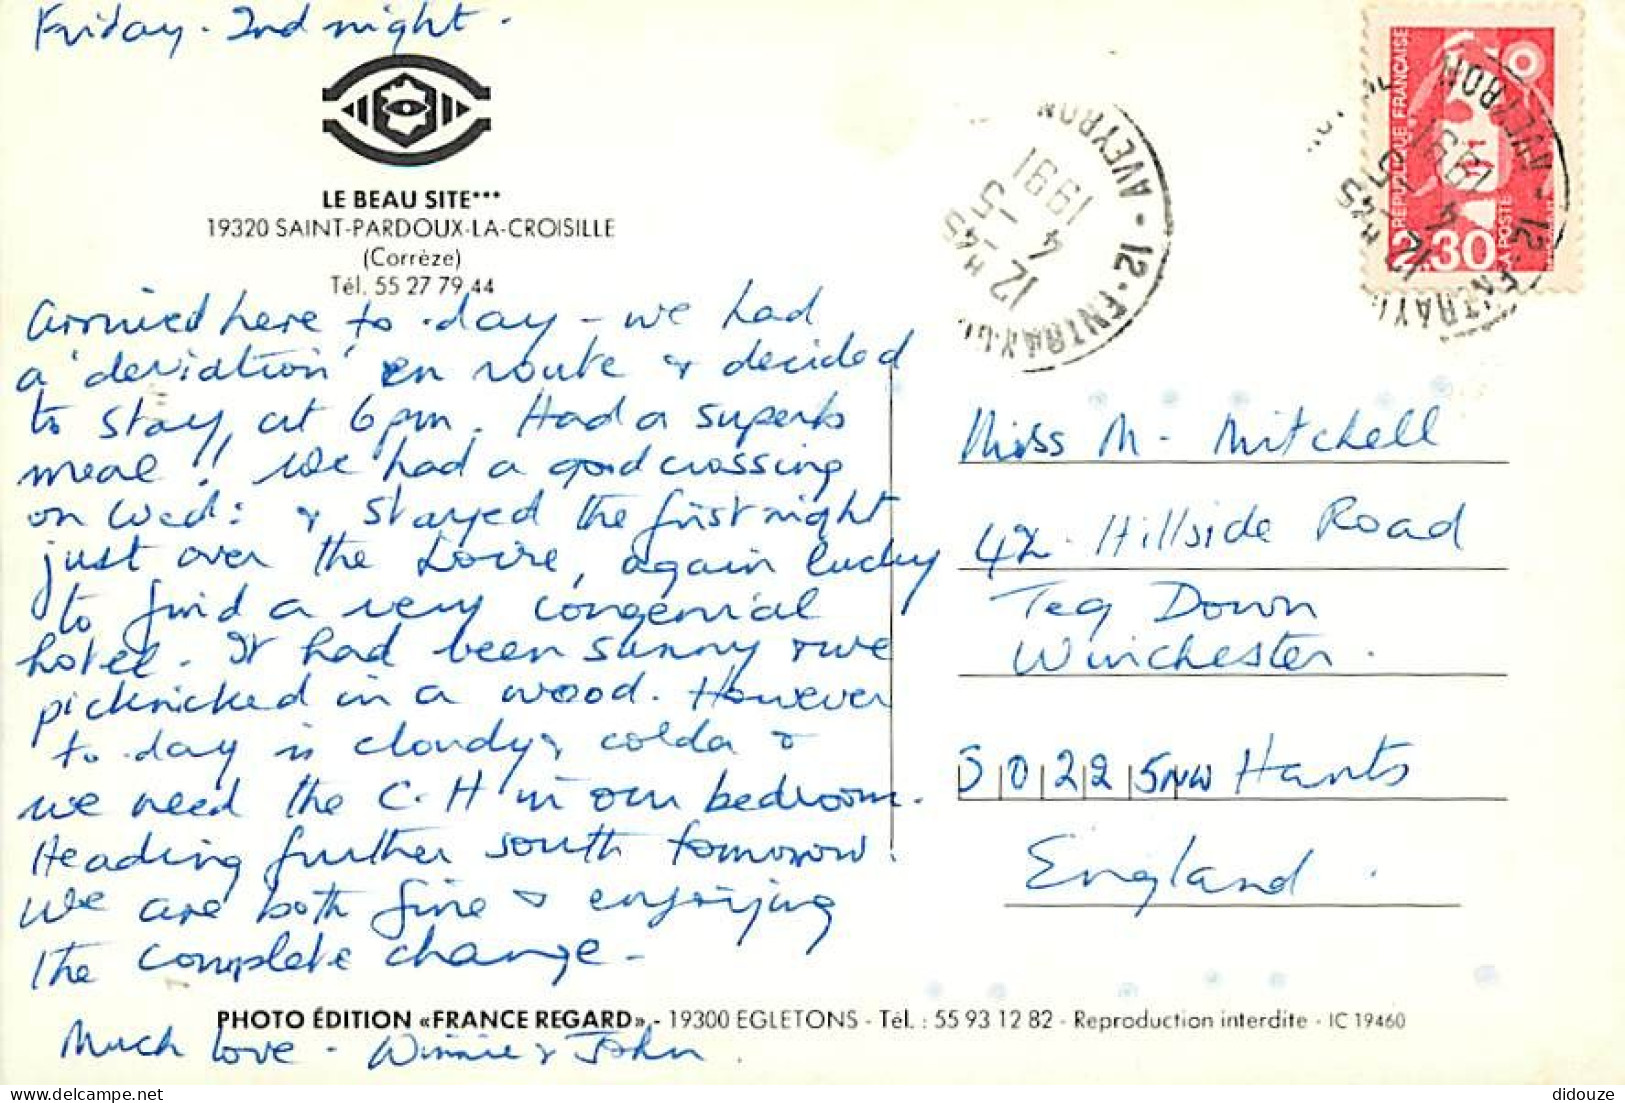 Friday - 2nd night -
LE BEAU SITE***
19320 SAINT-PARDOUX-LA-CROISILLE
(Corrèze)
Tél. 55 27 79 44
arrived here to-day - we had
a 'deviation' en route & decided
to stay at 6pm. Had a superb
meal! We had a good crossing
on Wed: & stayed the first night
just over the Loire, again lucky
to find a very congenial
hotel. It had been sunny & we
picknicked in a wood. However
to-day is cloudy & cold &
we need the C.H in our bedroom.
Heading further south tomorrow.
We are both fine & enjoying
the complete change -
Much love - Winnie & John.
Miss M. Mitchell
42 Hillside Road
Teg Down
Winchester.
S022 5NW Hants
England.
REPUBLIQUE FRANÇAISE
2.30
LA POSTE
12 H 45
4 - 5
1991
12-ENTRAYGU
AVEYRON
12 H 45
4 - 5
1991
12-ENTRAY
AVEYRON
PHOTO ÉDITION «FRANCE REGARD» - 19300 EGLETONS - Tél. : 55 93 12 82 - Reproduction interdite - IC 19460
didouze